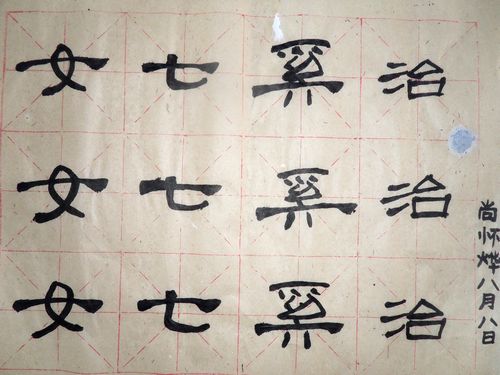 治治治
七七七
女女女
尚怀烨八月八日